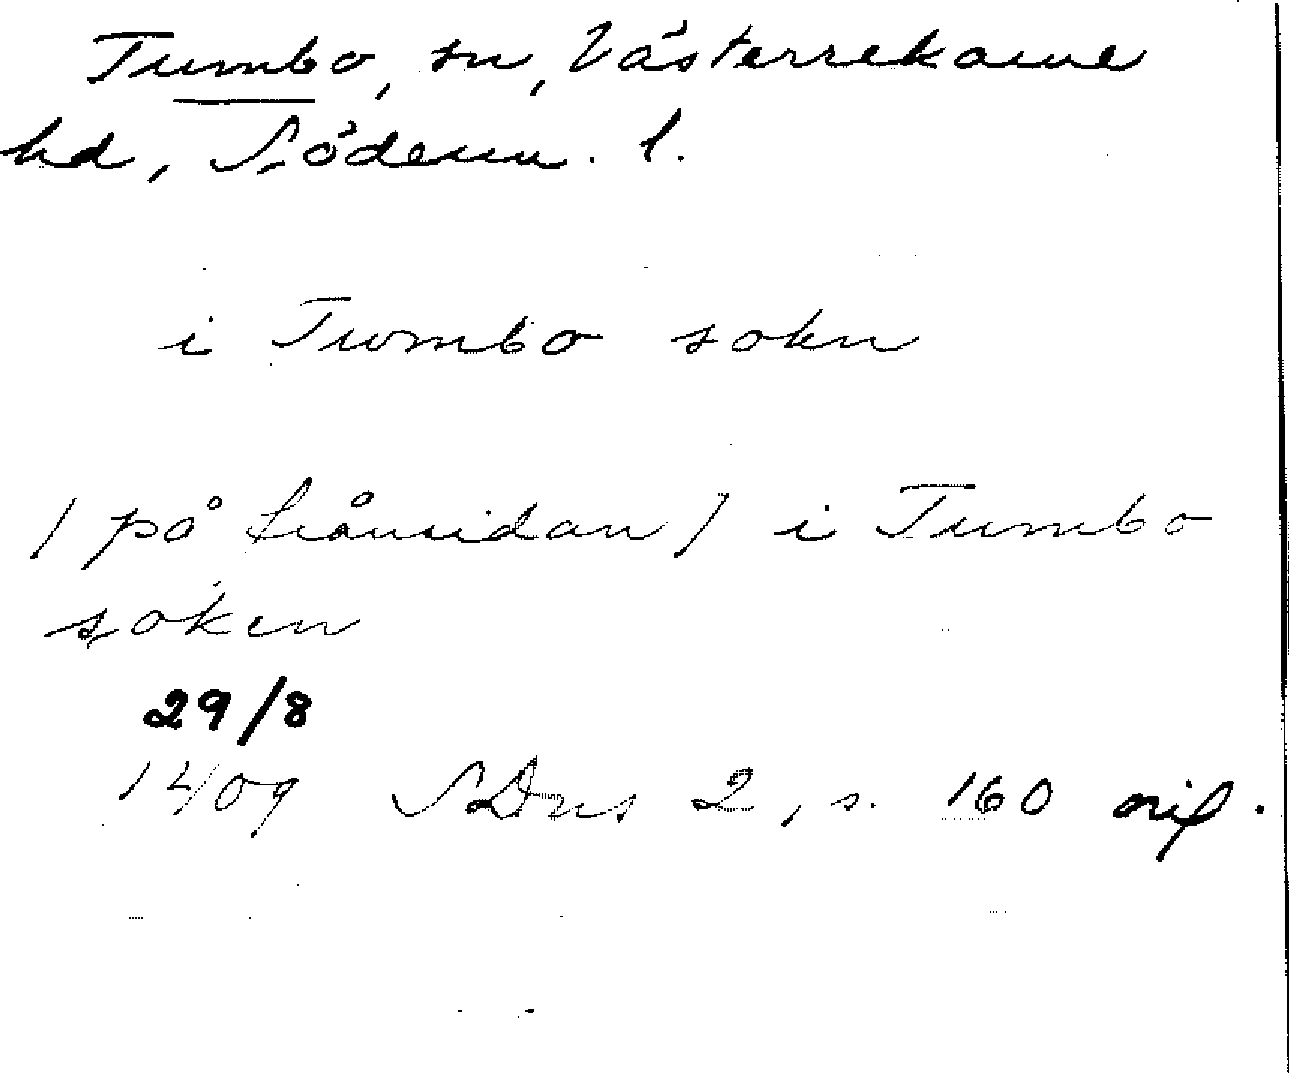 Tumbo, sn, Västerrekarne
hd, Söderm. l.
i Twmbo sokn
/ på frånsidan / i Tumbo
soken
29/8
1409 SDns 2, s. 160 orig.